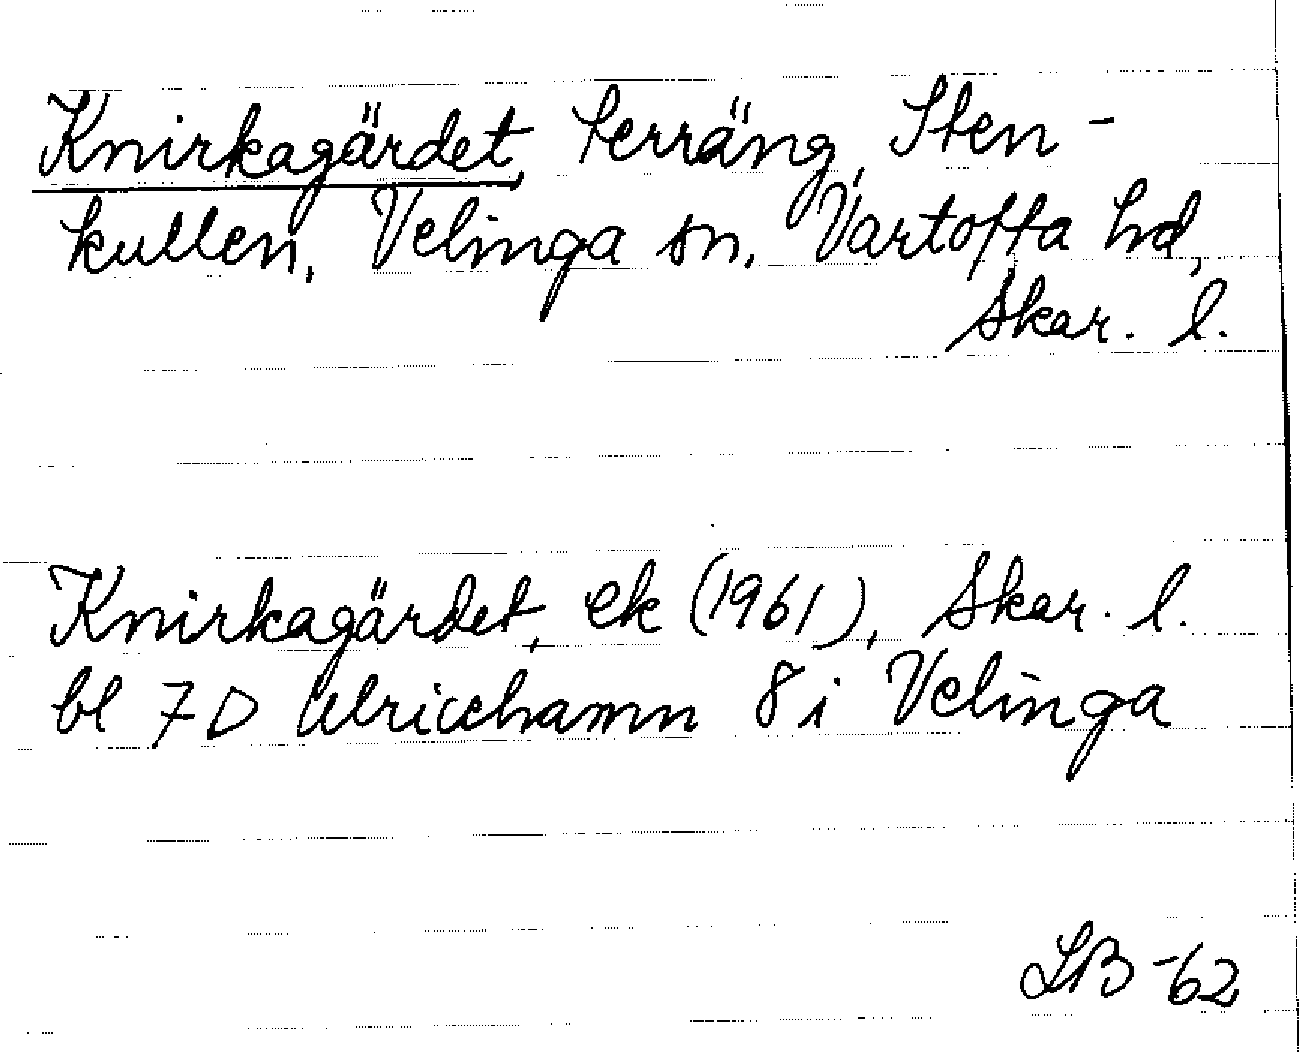 Knirkagärdet, terräng, Sten-
kullen, Velinga sn, Vartofta hd,
Skar. l.
Knirkagärdet, ek (1961), Skar. l.
bl 7D Ulricehamn 8i Velinga
SB -62